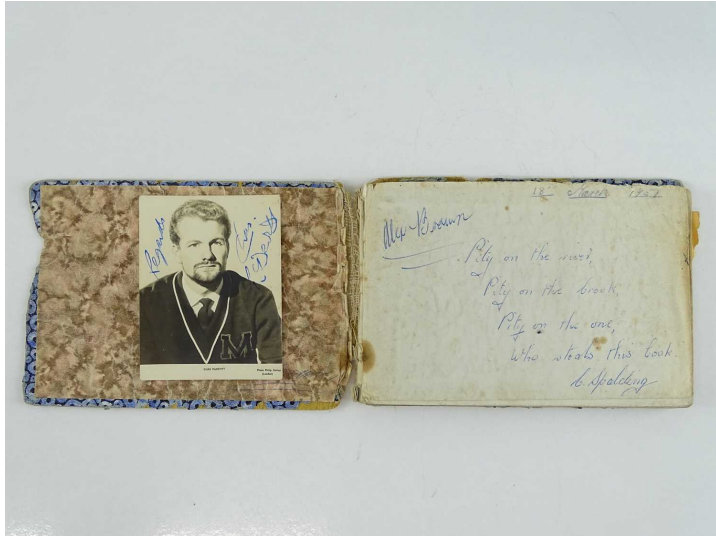 Regards
M
18th March 1957
Alex Brown
Pity on the river,
Pity on the brook,
Pity on the one,
Who steals this book.
C. Spalding